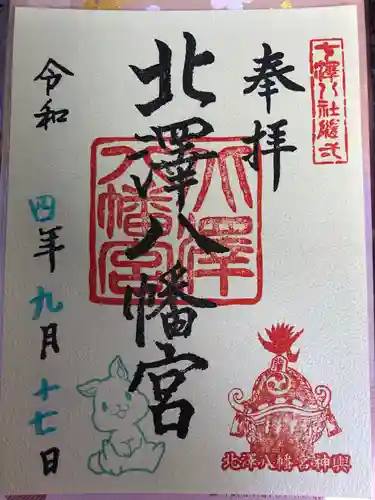 七澤八社隨弌
奉拝
北澤八幡宮
北澤
八幡宮
令和四年九月十七日
北澤八幡宮神輿